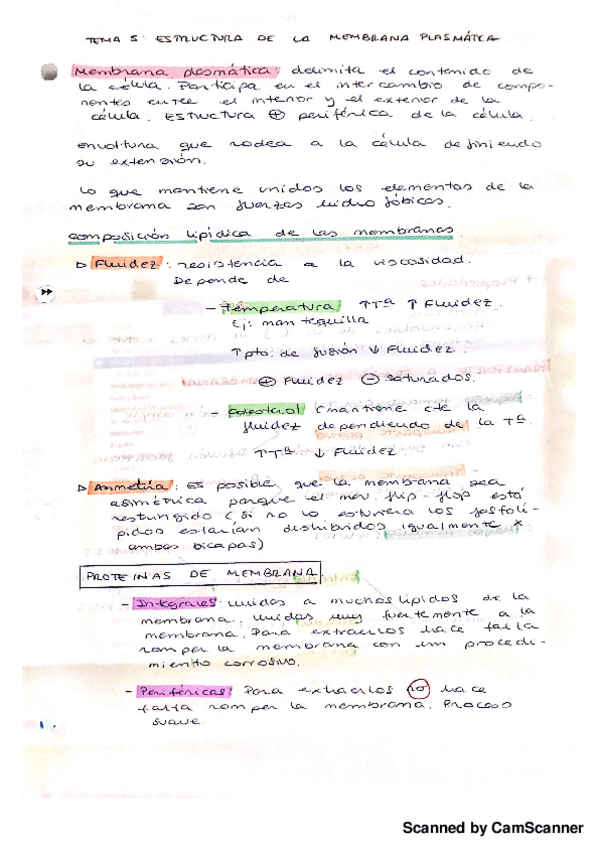 TEMA 5: ESTRUCTURA DE LA MEMBRANA PLASMÁTICA
Membrana plasmática: delimita el contenido de
la célula. Participa en el intercambio de compo-
nentes entre el interior y el exterior de la
célula. Estructura + periférica de la célula.
envoltura que rodea a la célula definiendo
su extensión.
Lo que mantiene unidos los elementos de la
membrana son fuerzas hidrofóbicas.
composición lipídica de las membranas.
▷ Fluidez: resistencia a la viscosidad.
Depende de
- Temperatura ↑Tª ↑ Fluidez.
Ej: mantequilla
↑ pto. de fusión ↓ Fluidez.
⊕ Fluidez ⊖ saturados.
- Colesterol (mantiene cte la
fluidez dependiendo de la Tª
↑Tª ↓ Fluidez
▷ Asimetría: Es posible que la membrana sea
asimétrica porque el mov. flip-flop está
restringido (si no lo estuviera los fosfolí-
pidos estarían distribuidos igualmente x
ambas bicapas)
PROTEINAS DE MEMBRANA
- Integrales: unidas a muchos lípidos de la
membrana, unidas muy fuertemente a la
membrana. Para extraerlos hace falta
romper la membrana con un procedi-
miento corrosivo.
- Periféricas: Para extraerlos no hace
falta romper la membrana. Proceso
suave.
Scanned by CamScanner